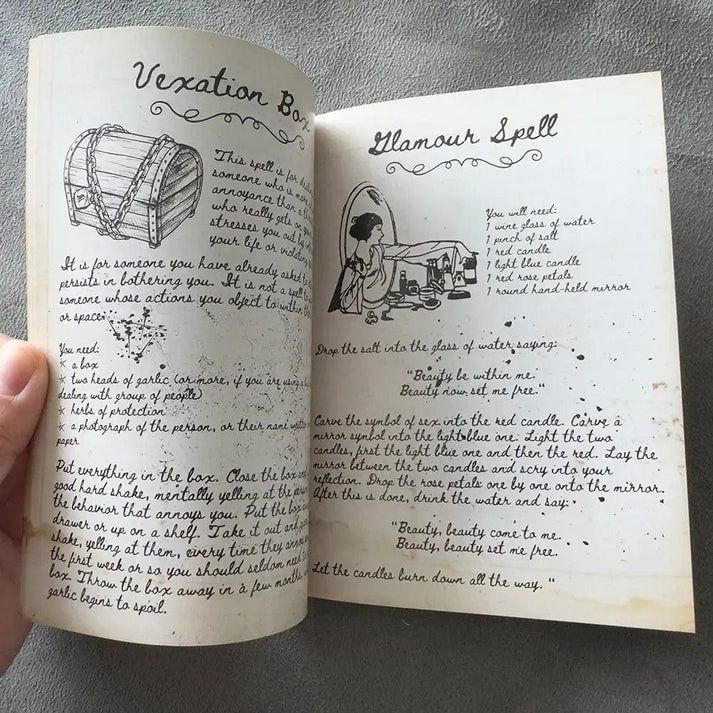 Vexation Box
This spell is for
someone who is more
annoyance than a
who really gets on
stresses you out by
your life or violating
It is for someone you have already asked to
persists in bothering you. It is not a spell
someone whose actions you object to within
or space.
You need:
* a box
* two heads of garlic (or more, if you are using a
dealing with group of people)
* herbs of protection
* a photograph of the person, or their name
paper
Put everything in the box. Close the box and
good hard shake, mentally yelling at the
the behavior that annoys you. Put the box
drawer or up on a shelf. Take it out and
shake, yelling at them, every time they annoy
the first week or so you should seldom need
box. Throw the box away in a few months,
garlic begins to spoil.
Glamour Spell
You will need:
1 wine glass of water
1 pinch of salt
1 red candle
1 light blue candle
1 red rose petals
1 round hand-held mirror
Drop the salt into the glass of water saying:
"Beauty be within me.
Beauty now set me free."
Carve the symbol of sex into the red candle. Carve a
mirror symbol into the light blue one. Light the two
candles, first the light blue one and then the red. Lay the
mirror between the two candles and scry into your
reflection. Drop the rose petals one by one onto the mirror.
After this is done, drink the water and say:
"Beauty, beauty come to me.
Beauty, beauty set me free.
Let the candles burn down all the way. "